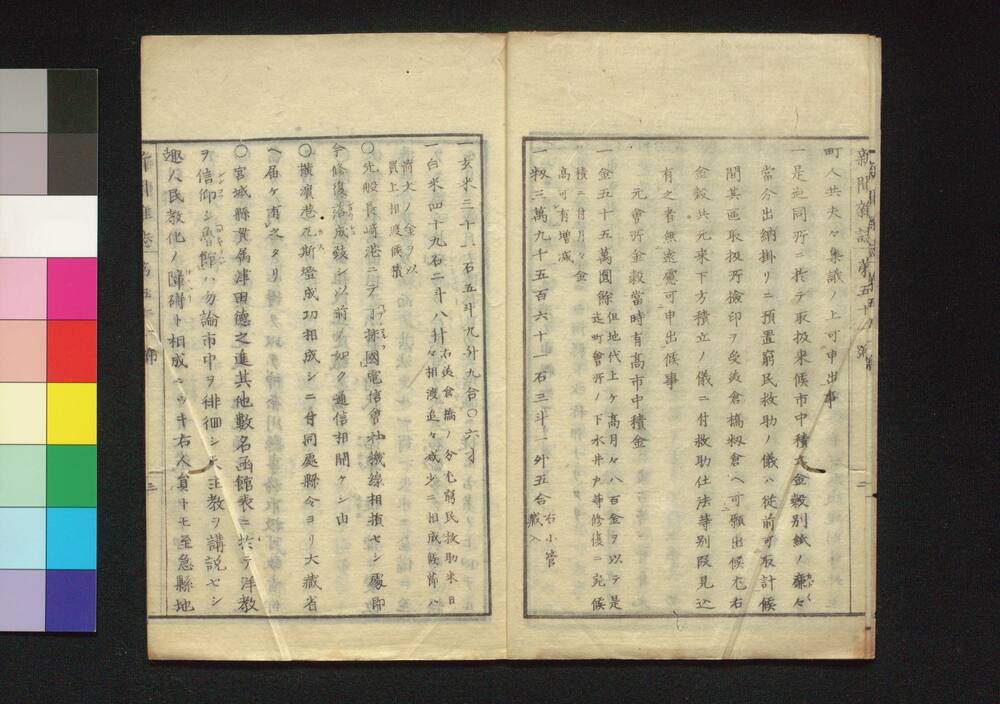 新聞雑誌第五十
町人共夫々集議ノ上可申出事
一是迄同所ニ於テ取扱来候市中積立金穀別紙ノ廉々
當今出納掛リニ預置窮民救助ノ儀ハ従前可取計候
間其區取扱所檢印ヲ受浅倉橋籾倉ヘ可願出候尤右
金穀共元来下方積立ノ儀ニ付救助仕法等別段見込
有之者無遠慮可申出候事
元會所金穀當時有髙市中積金
一金五十五萬圓餘
但地代上ケ髙月々八百金ヲ以テ是
迄町會所ノ下水井戸等修復ニ宛候
積ニ付月々金
髙可有増減
一籾三萬九千五百六十一石三斗一升五合
右小菅
藏入
一玄米三十石五斗九升九合〇六才
一白米四十九石二斗八升
右浅倉橋ノ分尤窮民救助米日
々相渡追々減少ニ相成候節ハ
前文ノ金ヲ以
買上相渡候積
〇先般長﨑港ニテ丁抹國電信會社機線相損セシ處即
今修復落成致シ以前ノ如ク通信相開ケシ由
〇横濱港瓦斯燈成功相成シニ付同處縣令ヨリ大藏省
ヘ届ケ有之タリ
〇宮城縣貫属津田德之進其他數名函館表ニ於テ洋教
ヲ信仰シ魯師ハ勿論市中ヲ徘徊シ天主教ヲ講説セシ
趣ハ民教化ノ障碍ト相成ニツキ右人員トモ至急縣地